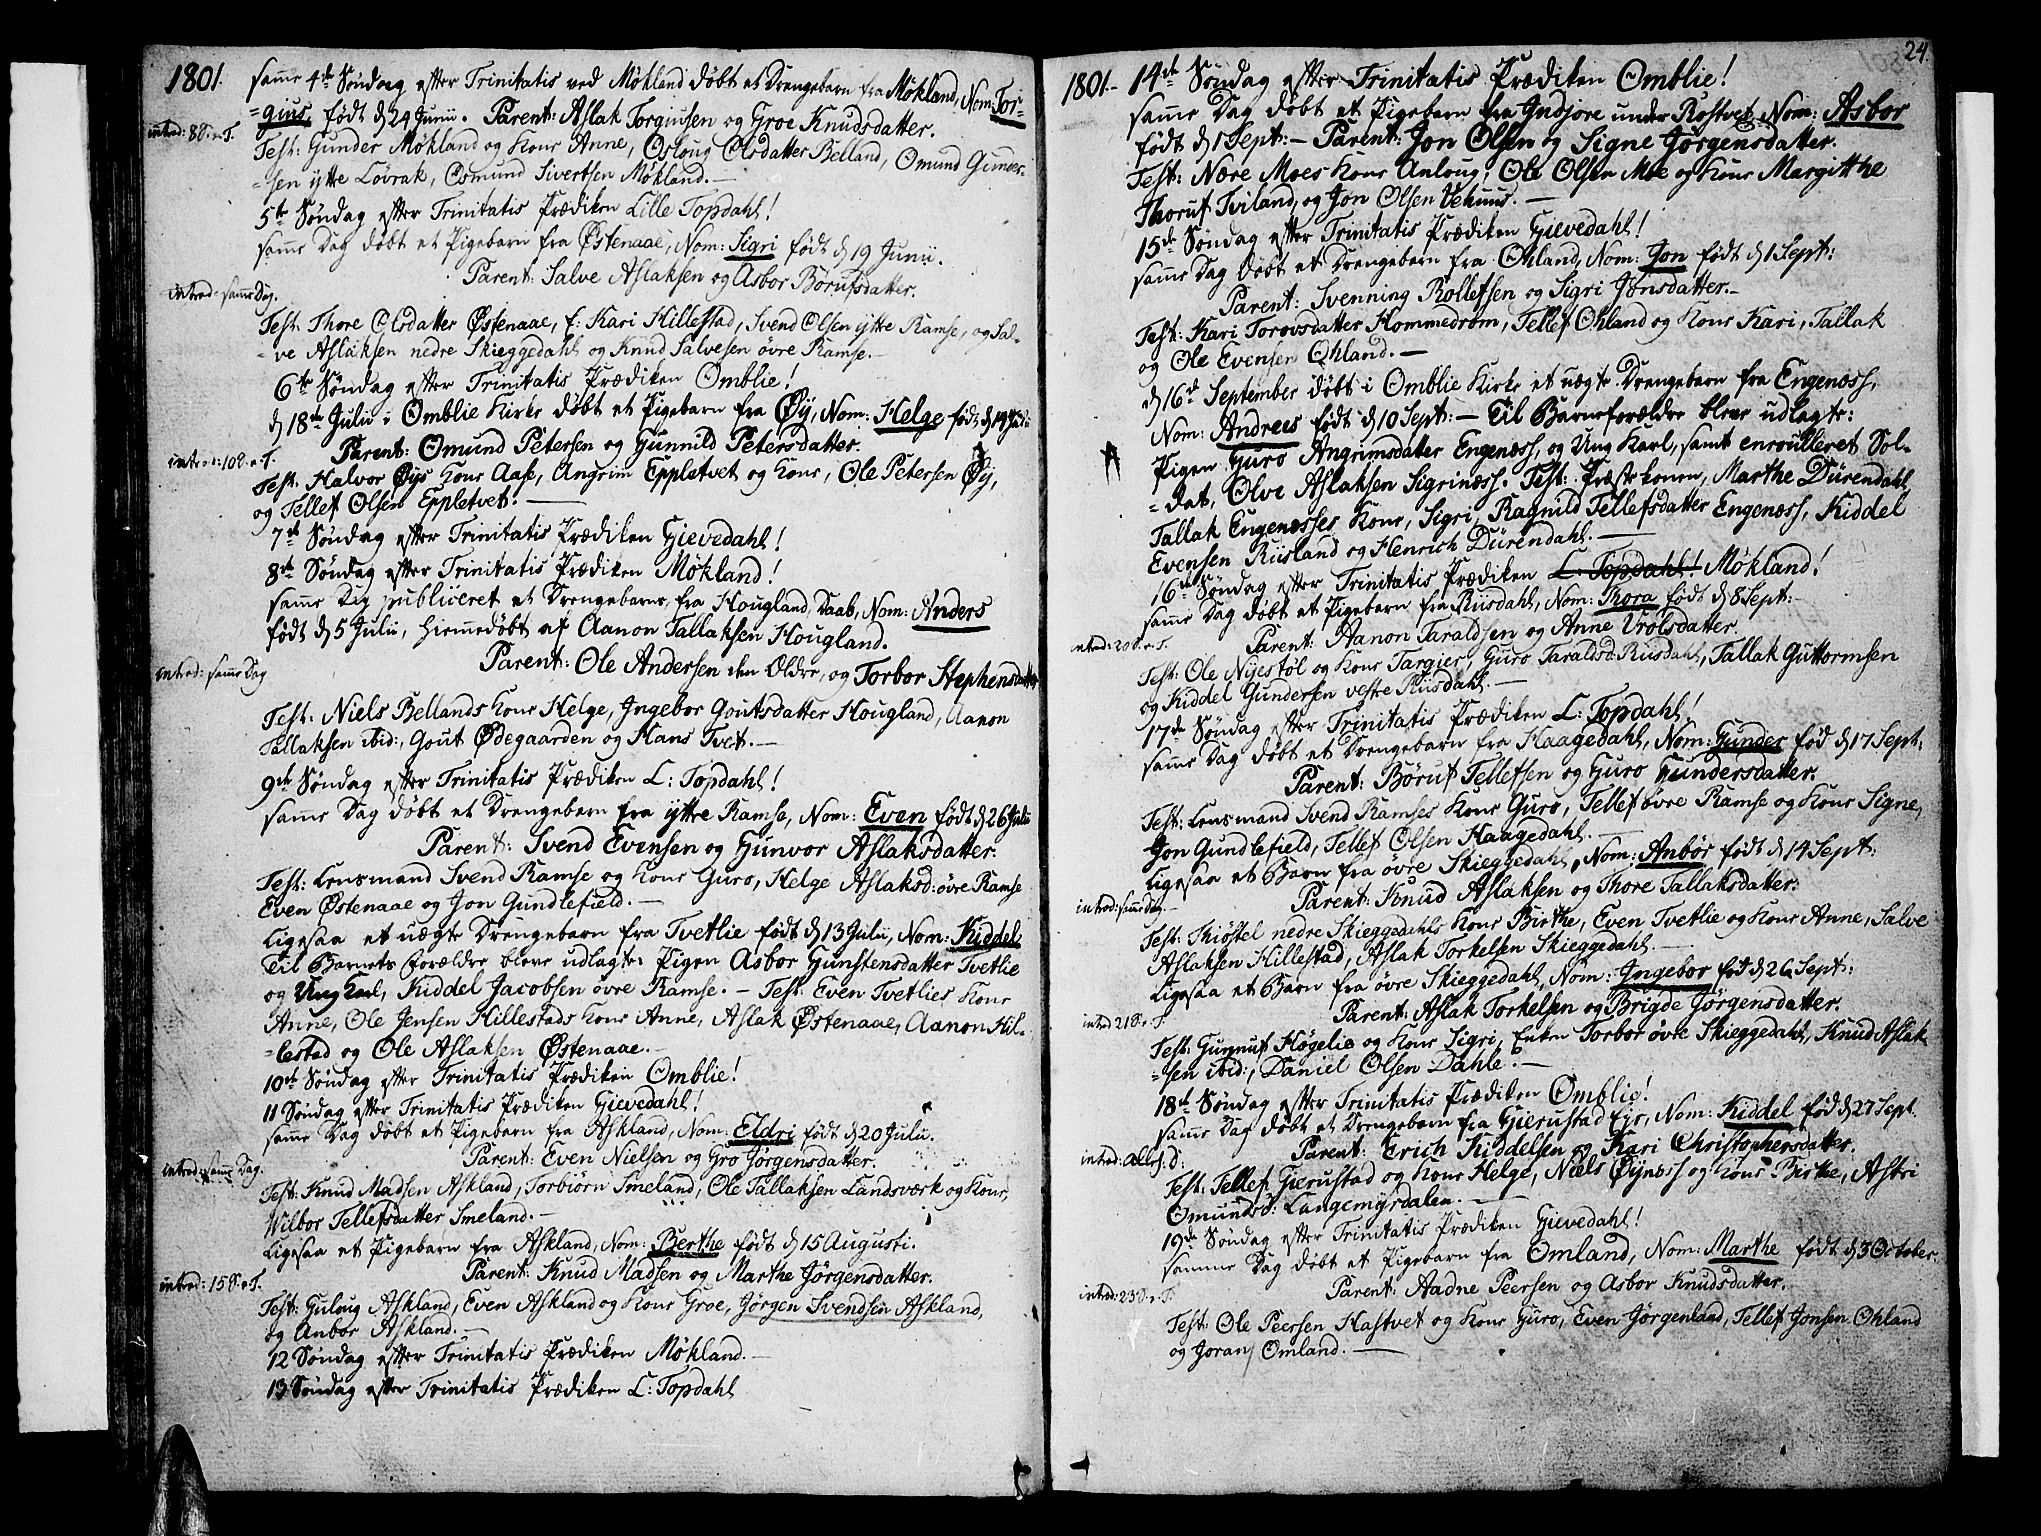 1801.
samme 4de Søndag efter Trinitatis ved Møkland døbt et Drengebarn fra Møkland, Nom: Tor-
=gius, født d 24 Junii. Parent: Aslak Torgiusen og Groe Knudsdatter.
introd: 8 S. e. T.
Test: Gunder Møkland og Kone Anne, Osloug Olsdatter Belland, Omund Gunder-
=sen ytte Lövrak, Osmund Sivertsen Møkland. —
5te Søndag efter Trinitatis Prædiken Lille Topdahl!
samme Dag døbt et Pigebarn fra Østenaae, Nom: Sigri født d 19 Junii.
Parent: Salve Aslaksen og Asbor Børufsdatter.
introd: samme Dag.
Test: Thore Olsdatter Østenaae, f: Kari Hillestad, Svend Olsen ytre Ramse, og Sal-
=ve Aslaksen nedre Skieggedahl og Knud Salvesen øvre Ramse. —
6te Søndag efter Trinitatis Prædiken Omblie!
d 18de Julii i Omblie Kirke døbt et Pigebarn fra Øÿ, Nom: Helge født d 14 Julii
Parent: Omund Petersen og Gunnild Petersdatter.
introd: 10 S. e. T.
Test: Halvor Øÿs Kone Aase, Angrim Eppletvet og Kone, Ole Petersen Øÿ,
og Tellef Olsen Eppletvet. —
7de Søndag efter Trinitatis Prædiken Gievedahl!
8de Søndag efter Trinitatis Prædiken Møkland!
samme Dag publiceret et Drengebarns, fra Hougland, Daab, Nom: Anders
født d 5 Julii, hiemmedøbt af Aanon Tallaksen Hougland.
Parent: Ole Andersen den Ældre, og Torbor Stephensdatter
introd: samme Dag
Test: Niels Bellands Kone Helge, Ingebor Goutsdatter Hougland, Aanon
Tallaksen ibid:, Gout Ødegaarden og Hans Tvet. —
9de Søndag efter Trinitatis Prædiken L: Topdahl!
samme Dag døbt et Drengebarn fra ytre Ramse, Nom: Even født d 26 Julii
Parent: Svend Evensen og Gunvor Aslaksdatter.
Test: Lensmand Svend Ramse og Kone Guro, Helge Aslaksd: øvre Ramse
Even Østenaae og Jon Gundlefield. —
Ligesaa et uægte Drengebarn fra Tvetlie født d 13 Julii, Nom: Kiddel
Til Barnets Forældre bleve udlagte: Pigen Asbor Gunstensdatter Tvetlie
og Ung Karl, Kiddel Jacobsen øvre Ramse. — Test: Even Tvetlies Kone
Anne, Ole Jensen Hillestads Kone Anne, Aslak Østenaae, Aanon Hil-
=lestad og Ole Aslaksen Østenaae. —
10de Søndag efter Trinitatis Prædiken Omblie!
11 Søndag efter Trinitatis Prædiken Gievedahl!
samme Dag døbt et Pigebarn fra Askland, Nom: Eldri født d 20 Julii.
Parent: Even Nielsen og Gro Jørgensdatter.
introd: samme Dag.
Test: Knud Madsen Askland, Torbiörn Smeland, Ole Tallaksen Landsværk og Kone,
Wilbor Tellefsdatter Smeland. —
Ligesaa et Pigebarn fra Askland, Nom: Berthe født d 15 Augusti.
Parent: Knud Madsen og Marthe Jørgensdatter.
introd: 15 S. e. T.
Test: Guloug Askland, Even Askland og Kone Groe, Jørgen Svendsen Askland,
og Anbor Askland. —
12 Søndag efter Trinitatis Prædiken Møkland. —
13 Søndag efter Trinitatis Prædiken L: Topdahl
24
1801.- 14de Søndag efter Trinitatis Prædiken Omblie!
samme Dag døbt et Pigebarn fra Indjore under Rostvet, Nom: Asbor
født d 1 Sept: — Parent: Jon Olsen og Signe Jørgensdatter.
Test: Nære Moes Kone Anloug, Ole Olsen Moe og Kone Margitthe
Thoruf Tviland, og Jon Olsen Vehuus. —
15de Søndag efter Trinitatis Prædiken Gievedahl!
samme Dag døbt et Drengebarn fra Ohland, Nom: Jon født d 1 Sept:
Parent: Svenning Rollefsen og Sigri Jonsdatter. —
Test: Kari Torovsdatter Hommedrom, Tellef Ohland og Kone Kari, Tallak
og Ole Evensen Ohland. —
d 16de September døbt i Omblie Kirke et uægte Drengebarn fra Engenæss,
Nom: Andrees født d 10 Sept: — Til Barneforældre bleve udlagte:
Pigen Guro Angrimsdatter Engenæss, og Ung Karl, samt enroulleret Sol-
=dat, Olve Aslaksen Sigrinæss. Test: Præstekonen, Marthe Dürendahl,
Tallak Engenæsses Kone, Sigri, Ragnild Tellefsdatter Engenæss, Kiddel
Evensen Riisland og Henrich Dürendahl. —
16de Søndag efter Trinitatis Prædiken L: Topdahl! Møkland!
samme Dag døbt et Pigebarn fra Riisdahl, Nom: Thora født d 8 Sept:
introd: 20 S. e. T.
Parent: Aanon Taraldsen og Anne Vrolsdatter.
Test: Ole Nyestøl og Kone Targier, Guro Taraldsd: Riisdahl, Tallak Guttormsen
og Kiddel Gundersen vestre Riisdahl. —
17de Søndag efter Trinitatis Prædiken L: Topdahl!
samme Dag døbt et Drengebarn fra Haagedahl, Nom: Gunder fød d 17 Sept:
Parent: Børuf Tellefsen og Guro Gundersdatter.
Test: Lensmand Svend Ramses Kone Guro, Tellef øvre Ramse og Kone Signe,
Jon Gundlefield, Tellef Olsen Haagedahl. —
Ligesaa et Barn fra øvre Skieggedahl, Nom: Anbør født d 14 Sept:
introd: samme Dag. —
Parent: Knud Aslaksen og Thore Tallaksdatter.
Test: Kiøstel nedre Skieggedahls Kone Birthe, Even Tvetlie og Kone Anne, Salve
Aslaksen Hillestad, Aslak Torkelsen Skieggedahl. —
Ligesaa et Barn fra øvre Skieggedahl, Nom: Ingebor fød d 26 Sept:
Parent: Aslak Torkelsen og Brigde Jörgensdatter.
introd 21 S. e. T.
Test: Gunnuf Høgelie og Kone Sigri, Enken Torbor øvre Skieggedahl, Knud Aslak-
=sen ibid:, Daniel Olsen Dahle. —
18de Søndag efter Trinitatis Prædiken Omblie!
samme Dag døbt et Drengebarn fra Gierustad Eje, Nom: Kiddel fød d 27 Sept.
Parent: Erich Kiddelsen og Kari Christophersdatter.
introd: Allers. d:
Test: Tellef Gierustad og Kone Helge, Niels Øynæs og Kone Birthe, Astri
Omundsd: Langemyrsdalen. —
19de Søndag efter Trinitatis Prædiken Gievedahl!
samme Dag døbt et Pigebarn fra Omland, Nom: Marthe født d 3 October.
Parent: Aadne Peersen og Asbor Knudsdatter.
introd: 23 S. e. T.
Test: Ole Peersen Hastvet og Kone Guro, Even Jörgenland, Tellef Jonsen Ohland
og Joran Omland. —